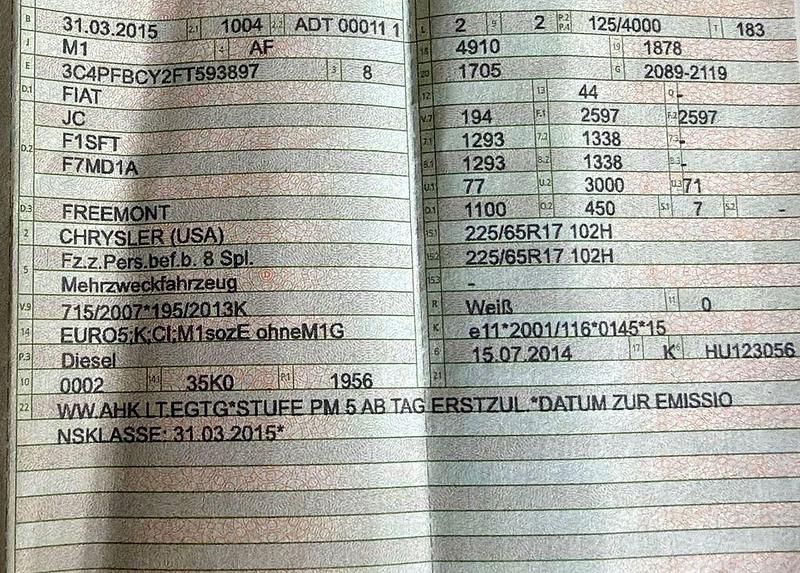 B 31.03.2015 2.1 1004 2.2 ADT 00011 1
J M1 4 AF
E 3C4PFBCY2FT593897 3 8
D.1 FIAT
JC
D.2 F1SFT
F7MD1A
D.3 FREEMONT
2 CHRYSLER (USA)
5 Fz.z.Pers.bef.b. 8 Spl.
Mehrzweckfahrzeug
V.9 715/2007*195/2013K
14 EURO5;K;CI;M1sozE ohneM1G
P.3 Diesel
10 0002 14.1 35K0 P.1 1956
L 2 9 2 P.2 P.4 125/4000 T 183
18 4910 19 1878
20 1705 G 2089-2119
12 13 44 Q -
V.7 194 F.1 2597 F.2 2597
7.1 1293 7.2 1338 7.3 -
8.1 1293 8.2 1338 8.3 -
U.1 77 U.2 3000 U.3 71
O.1 1100 O.2 450 S.1 7 S.2 -
15.1 225/65R17 102H
15.2 225/65R17 102H
15.3 -
R Weiß 11 0
K e11*2001/116*0145*15
6 15.07.2014 17 K 16 HU123056
21
22 WW.AHK LT.EGTG*STUFE PM 5 AB TAG ERSTZUL.*DATUM ZUR EMISSIO
NSKLASSE: 31.03.2015*